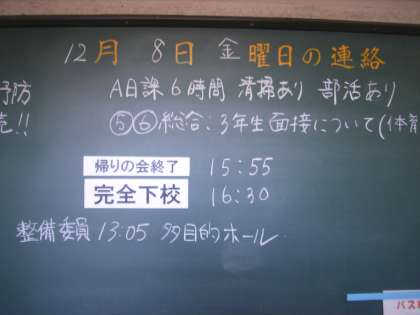 12月 8日 金曜日の連絡
予防 A日課6時間 清掃あり 部活あり
!! ⑤⑥総合：3年生面接について(体育
帰りの会終了 15:55
完全下校 16:30
整備委員 13:05 多目的ホール
バス